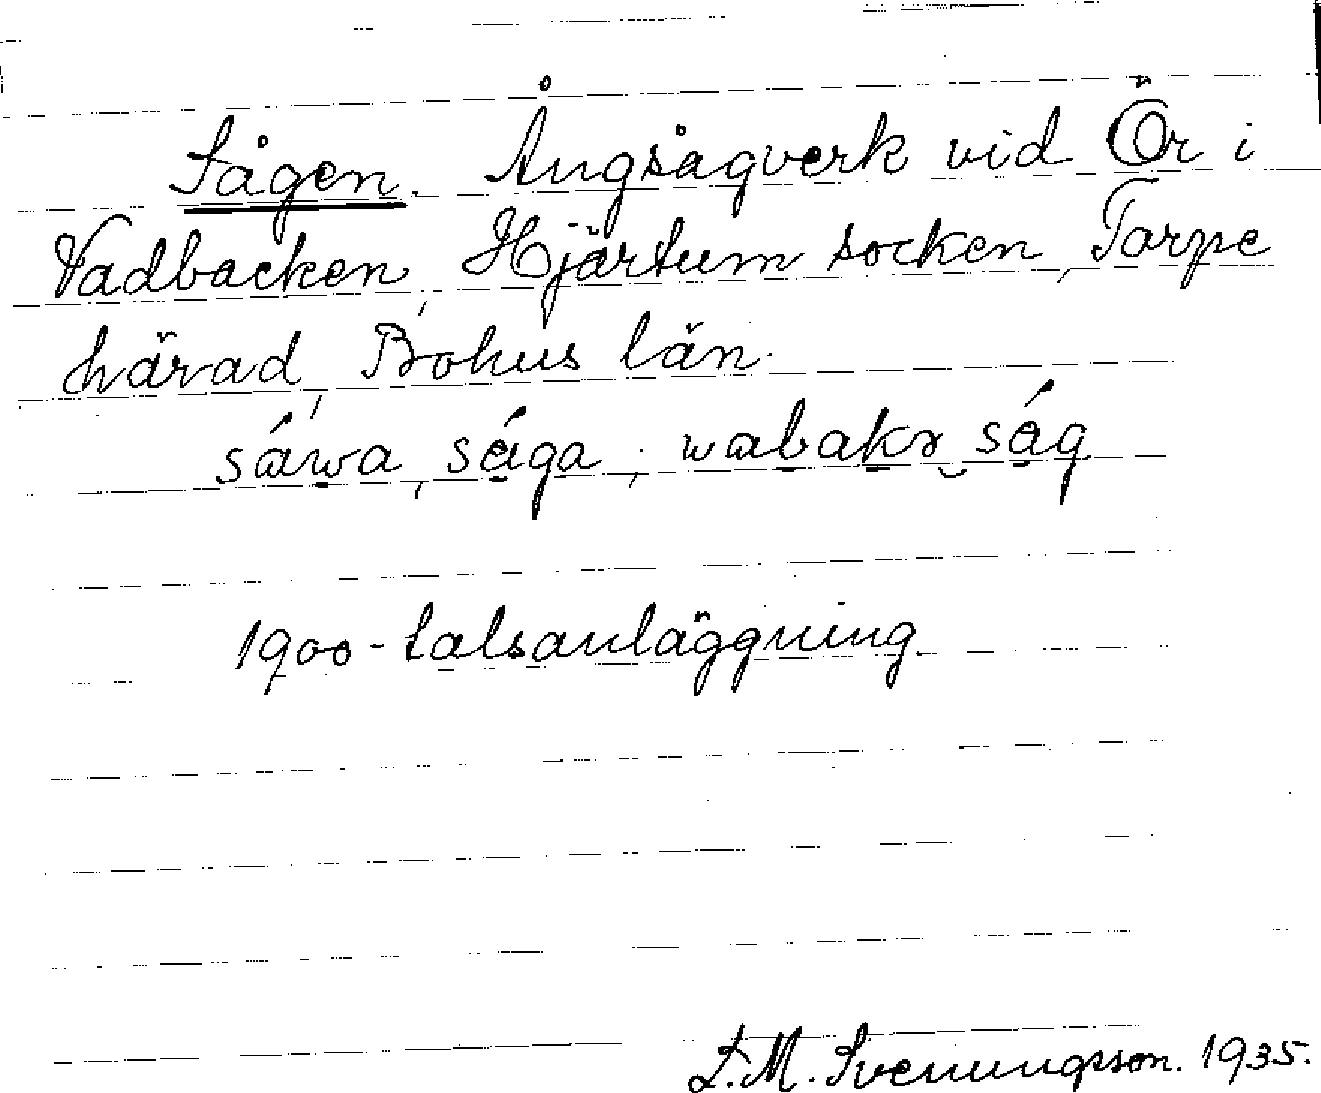 Sågen. Ångsågverk vid Ör i
Vadbacken, Hjärtum socken, Torpe
härad, Bohus län.
sáwa, sága; wabakɤ ság
1900-talsanläggning
L.M. Svenungsson. 1935.